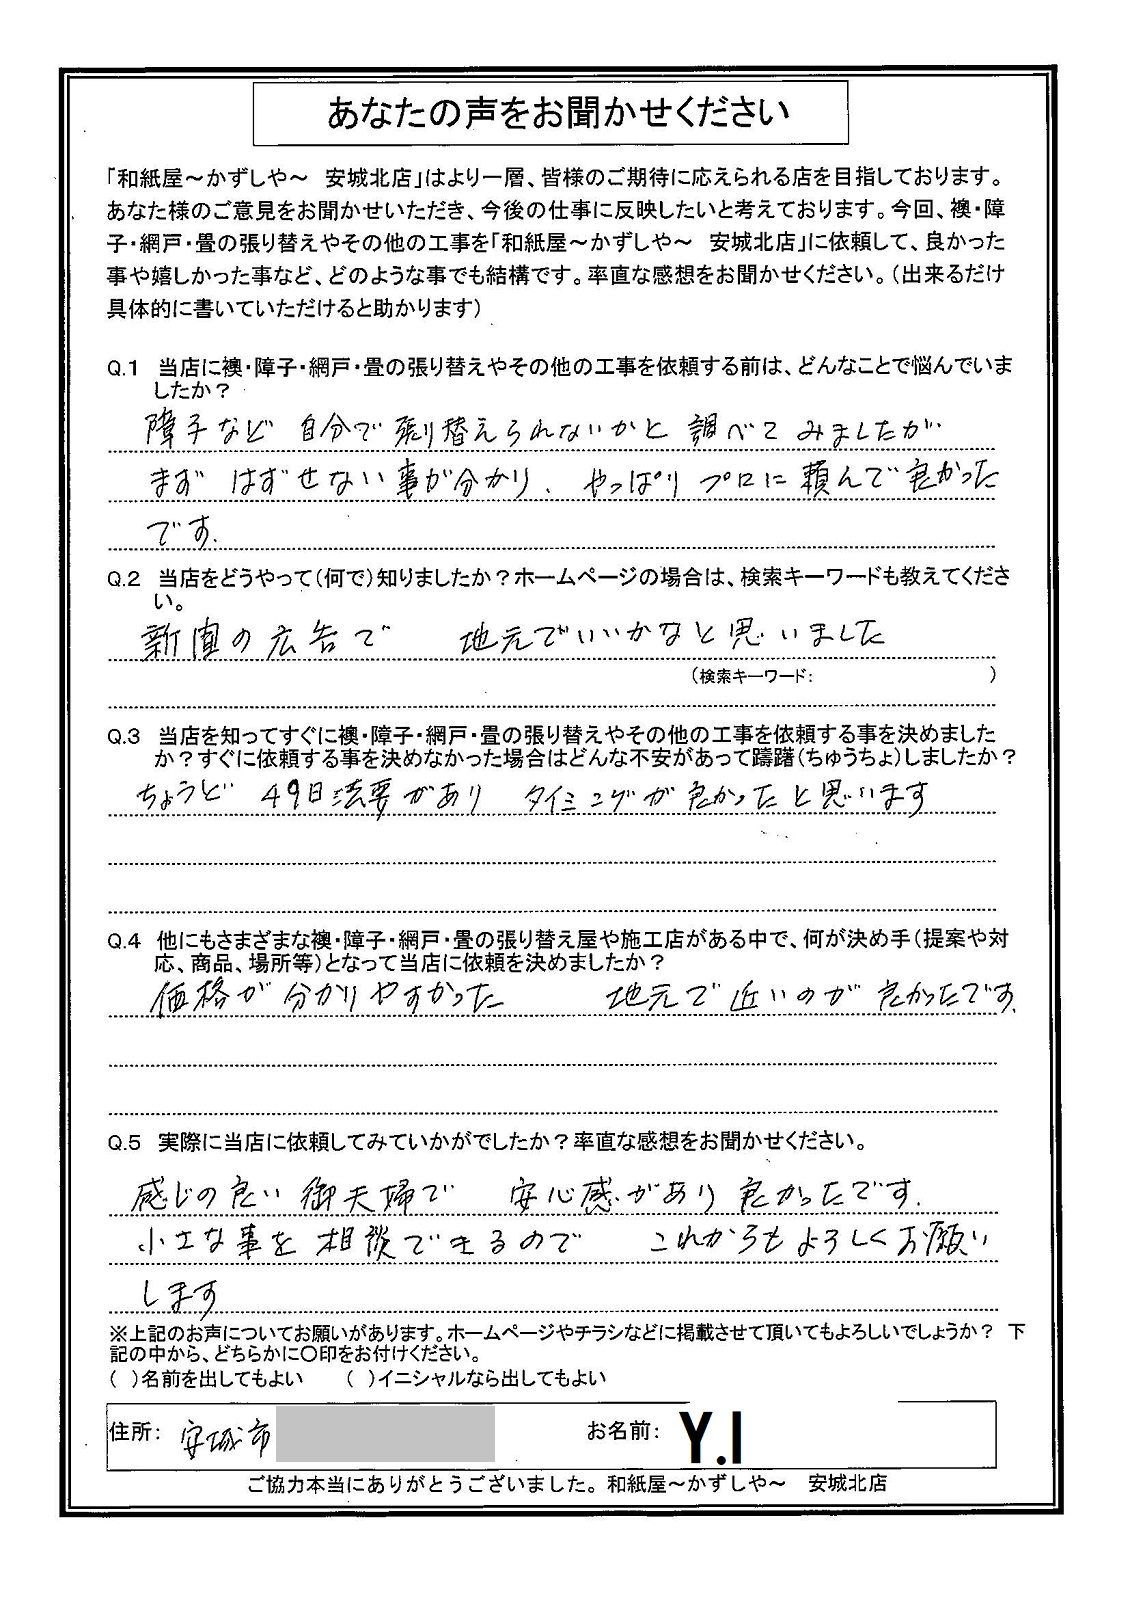 あなたの声をお聞かせください
「和紙屋～かずしや～　安城北店」はより一層、皆様のご期待に応えられる店を目指しております。
あなた様のご意見をお聞かせいただき、今後の仕事に反映したいと考えております。今回、襖・障
子・網戸・畳の張り替えやその他の工事を「和紙屋～かずしや～　安城北店」に依頼して、良かった
事や嬉しかった事など、どのような事でも結構です。率直な感想をお聞かせください。（出来るだけ
具体的に書いていただけると助かります）
Q.1　当店に襖・障子・網戸・畳の張り替えやその他の工事を依頼する前は、どんなことで悩んでいま
したか？
障子など 自分で張り替えられないかと 調べてみましたが
まず はずせない事が分かり、やっぱりプロに頼んで良かった
です.
Q.2　当店をどうやって（何で）知りましたか？ホームページの場合は、検索キーワードも教えてくださ
い。
新聞の広告で　地元でいいかなと思いました
（検索キーワード：　　　　　　　）
Q.3　当店を知ってすぐに襖・障子・網戸・畳の張り替えやその他の工事を依頼する事を決めました
か？すぐに依頼する事を決めなかった場合はどんな不安があって躊躇（ちゅうちょ）しましたか？
ちょうど 49日法要があり タイミングが良かったと思います
Q.4　他にもさまざまな襖・障子・網戸・畳の張り替え屋や施工店がある中で、何が決め手（提案や対
応、商品、場所等）となって当店に依頼を決めましたか？
価格が分かりやすかった　地元で近いのが良かったです.
Q.5　実際に当店に依頼してみていかがでしたか？率直な感想をお聞かせください。
感じの良い御夫婦で 安心感があり良かったです.
小さな事を相談できるので これからもよろしくお願い
します
※上記のお声についてお願いがあります。ホームページやチラシなどに掲載させて頂いてもよろしいでしょうか？ 下
記の中から、どちらかに〇印をお付けください。
（ ）名前を出してもよい　（ ）イニシャルなら出してもよい
住所： 安城市　お名前： Y.I
ご協力本当にありがとうございました。和紙屋～かずしや～　安城北店